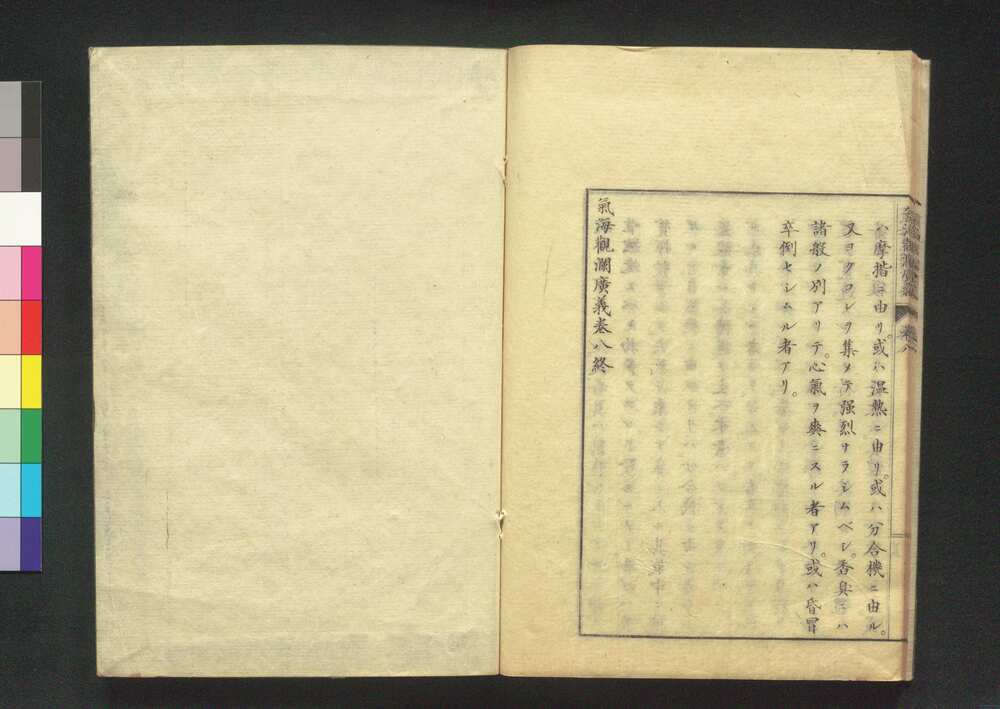 ハ摩揩ニ由リ。或ハ温熱ニ由リ。或ハ分合機ニ由ル。
又ヨクコレヲ集メテ强烈ナラシムベシ。香臭ニハ
諸般ノ別アリテ。心氣ヲ爽ニスル者アリ。或ハ昏冒
卒倒セシムル者アリ。
氣海觀瀾廣義卷八終